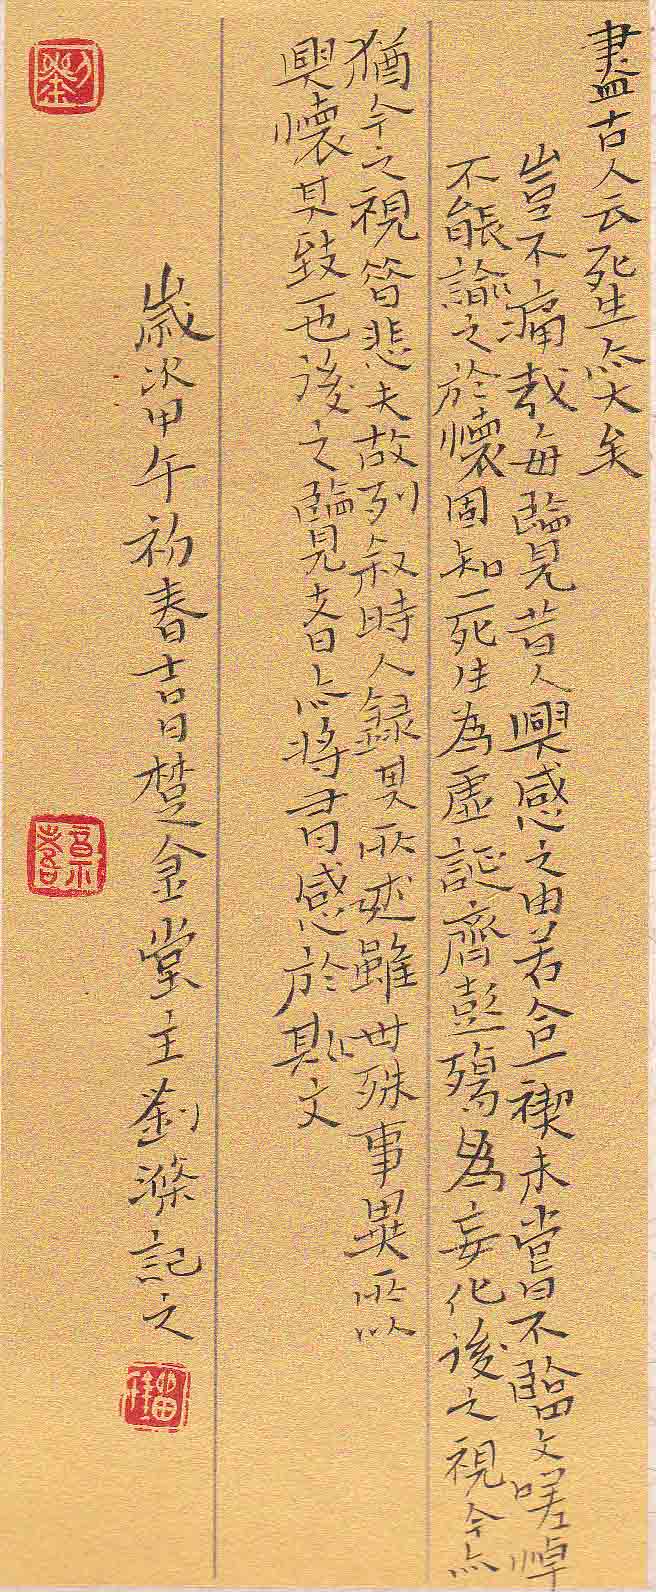 盡古人云死生亦大矣
豈不痛哉每覽昔人興感之由若合一禊未嘗不臨文嗟悼
不能諭之於懷固知一死生為虛誕齊彭殤為妄化後之視今亦
猶今之視昔悲夫故列叙時人錄其所述雖世殊事異所以
興懷其致一也後之覽者亦將有感於斯文
歲次甲午初春吉日楚金堂主劉滌記之
劉